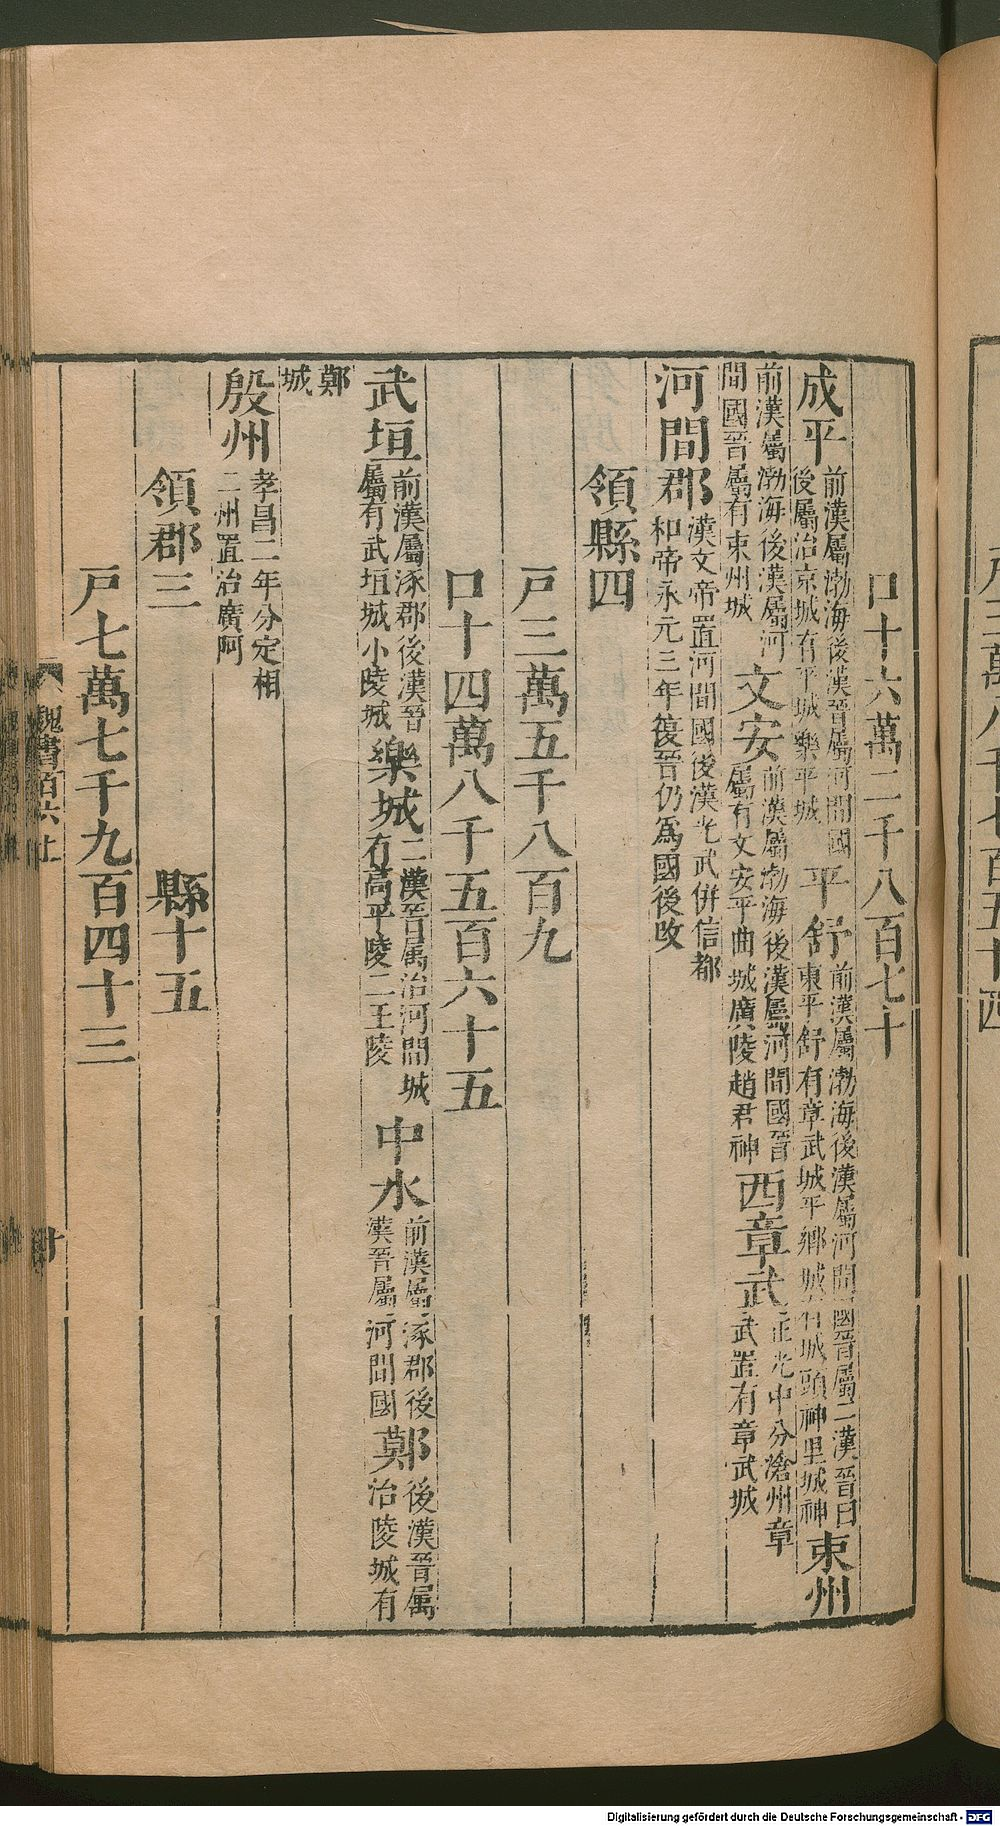 口十六萬二千八百七十
成平前漢屬渤海後漢晉屬河間國後屬治京城有平城樂平城平舒前漢屬渤海後漢屬河間國晉屬二漢晉曰東平舒有章武城平鄉城有城頭神里城神束州
前漢屬渤海後漢屬河間國晉屬有束州城文安前漢屬渤海後漢屬河間國晉屬有文安平曲城廣陵趙君神西章武正光中分滄州章武置有章武城
河間郡漢文帝置河間國後漢光武併信都和帝永元三年復晉仍爲國後改
領縣四
戸三萬五千八百九
口十四萬八千五百六十五
武垣前漢屬涿郡後漢晉屬有武垣城小陵城樂城二漢晉屬治河間城有高平陵二王陵中水前漢屬涿郡後漢晉屬河間國鄚後漢晉屬治陵城有
鄚城
殷州孝昌二年分定相二州置治廣阿
領郡三 縣十五
戸七萬七千九百四十三
魏書百六上
十
戸三萬八千七百五十四
Digitalisierung gefördert durch die Deutsche Forschungsgemeinschaft - DFG